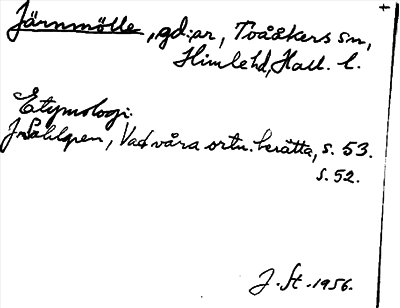 Järnmölle, gd:ar, Tvååkers sn,
Himle hd, Hall. l.
Etymologi:
J Sahlgren, Vad våra ortn. berätta, s. 53.
s. 52.
J. St. 1956.